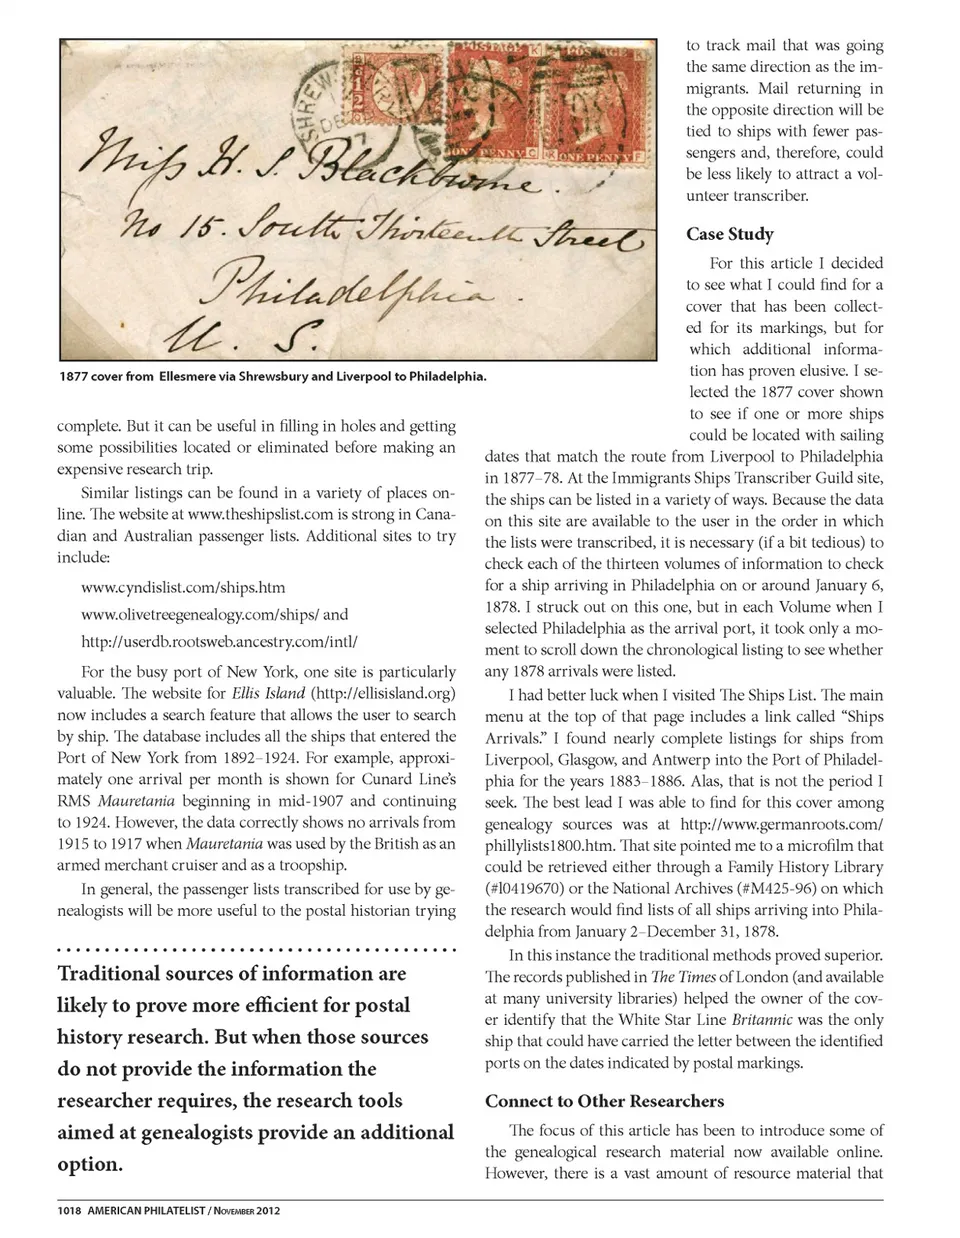 SHREWSBURY
DE
77
1/2
POSTAGE
K
K
ONE PENNY
C
K
ONE PENNY
F
Miss H. S. Blackburne.
No 15. South Thirteenth Street
Philadelphia.
U. S.
1877 cover from Ellesmere via Shrewsbury and Liverpool to Philadelphia.
complete. But it can be useful in filling in holes and getting
some possibilities located or eliminated before making an
expensive research trip.
Similar listings can be found in a variety of places on-
line. The website at www.theshipslist.com is strong in Cana-
dian and Australian passenger lists. Additional sites to try
include:
www.cyndislist.com/ships.htm
www.olivetreegenealogy.com/ships/ and
http://userdb.rootsweb.ancestry.com/intl/
For the busy port of New York, one site is particularly
valuable. The website for Ellis Island (http://ellisisland.org)
now includes a search feature that allows the user to search
by ship. The database includes all the ships that entered the
Port of New York from 1892–1924. For example, approxi-
mately one arrival per month is shown for Cunard Line's
RMS Mauretania beginning in mid-1907 and continuing
to 1924. However, the data correctly shows no arrivals from
1915 to 1917 when Mauretania was used by the British as an
armed merchant cruiser and as a troopship.
In general, the passenger lists transcribed for use by ge-
nealogists will be more useful to the postal historian trying
Traditional sources of information are
likely to prove more efficient for postal
history research. But when those sources
do not provide the information the
researcher requires, the research tools
aimed at genealogists provide an additional
option.
to track mail that was going
the same direction as the im-
migrants. Mail returning in
the opposite direction will be
tied to ships with fewer pas-
sengers and, therefore, could
be less likely to attract a vol-
unteer transcriber.
Case Study
For this article I decided
to see what I could find for a
cover that has been collect-
ed for its markings, but for
which additional informa-
tion has proven elusive. I se-
lected the 1877 cover shown
to see if one or more ships
could be located with sailing
dates that match the route from Liverpool to Philadelphia
in 1877–78. At the Immigrants Ships Transcriber Guild site,
the ships can be listed in a variety of ways. Because the data
on this site are available to the user in the order in which
the lists were transcribed, it is necessary (if a bit tedious) to
check each of the thirteen volumes of information to check
for a ship arriving in Philadelphia on or around January 6,
1878. I struck out on this one, but in each Volume when I
selected Philadelphia as the arrival port, it took only a mo-
ment to scroll down the chronological listing to see whether
any 1878 arrivals were listed.
I had better luck when I visited The Ships List. The main
menu at the top of that page includes a link called “Ships
Arrivals.” I found nearly complete listings for ships from
Liverpool, Glasgow, and Antwerp into the Port of Philadel-
phia for the years 1883–1886. Alas, that is not the period I
seek. The best lead I was able to find for this cover among
genealogy sources was at http://www.germanroots.com/
phillylists1800.htm. That site pointed me to a microfilm that
could be retrieved either through a Family History Library
(#l0419670) or the National Archives (#M425-96) on which
the research would find lists of all ships arriving into Phila-
delphia from January 2–December 31, 1878.
In this instance the traditional methods proved superior.
The records published in The Times of London (and available
at many university libraries) helped the owner of the cov-
er identify that the White Star Line Britannic was the only
ship that could have carried the letter between the identified
ports on the dates indicated by postal markings.
Connect to Other Researchers
The focus of this article has been to introduce some of
the genealogical research material now available online.
However, there is a vast amount of resource material that
1018 AMERICAN PHILATELIST / NOVEMBER 2012